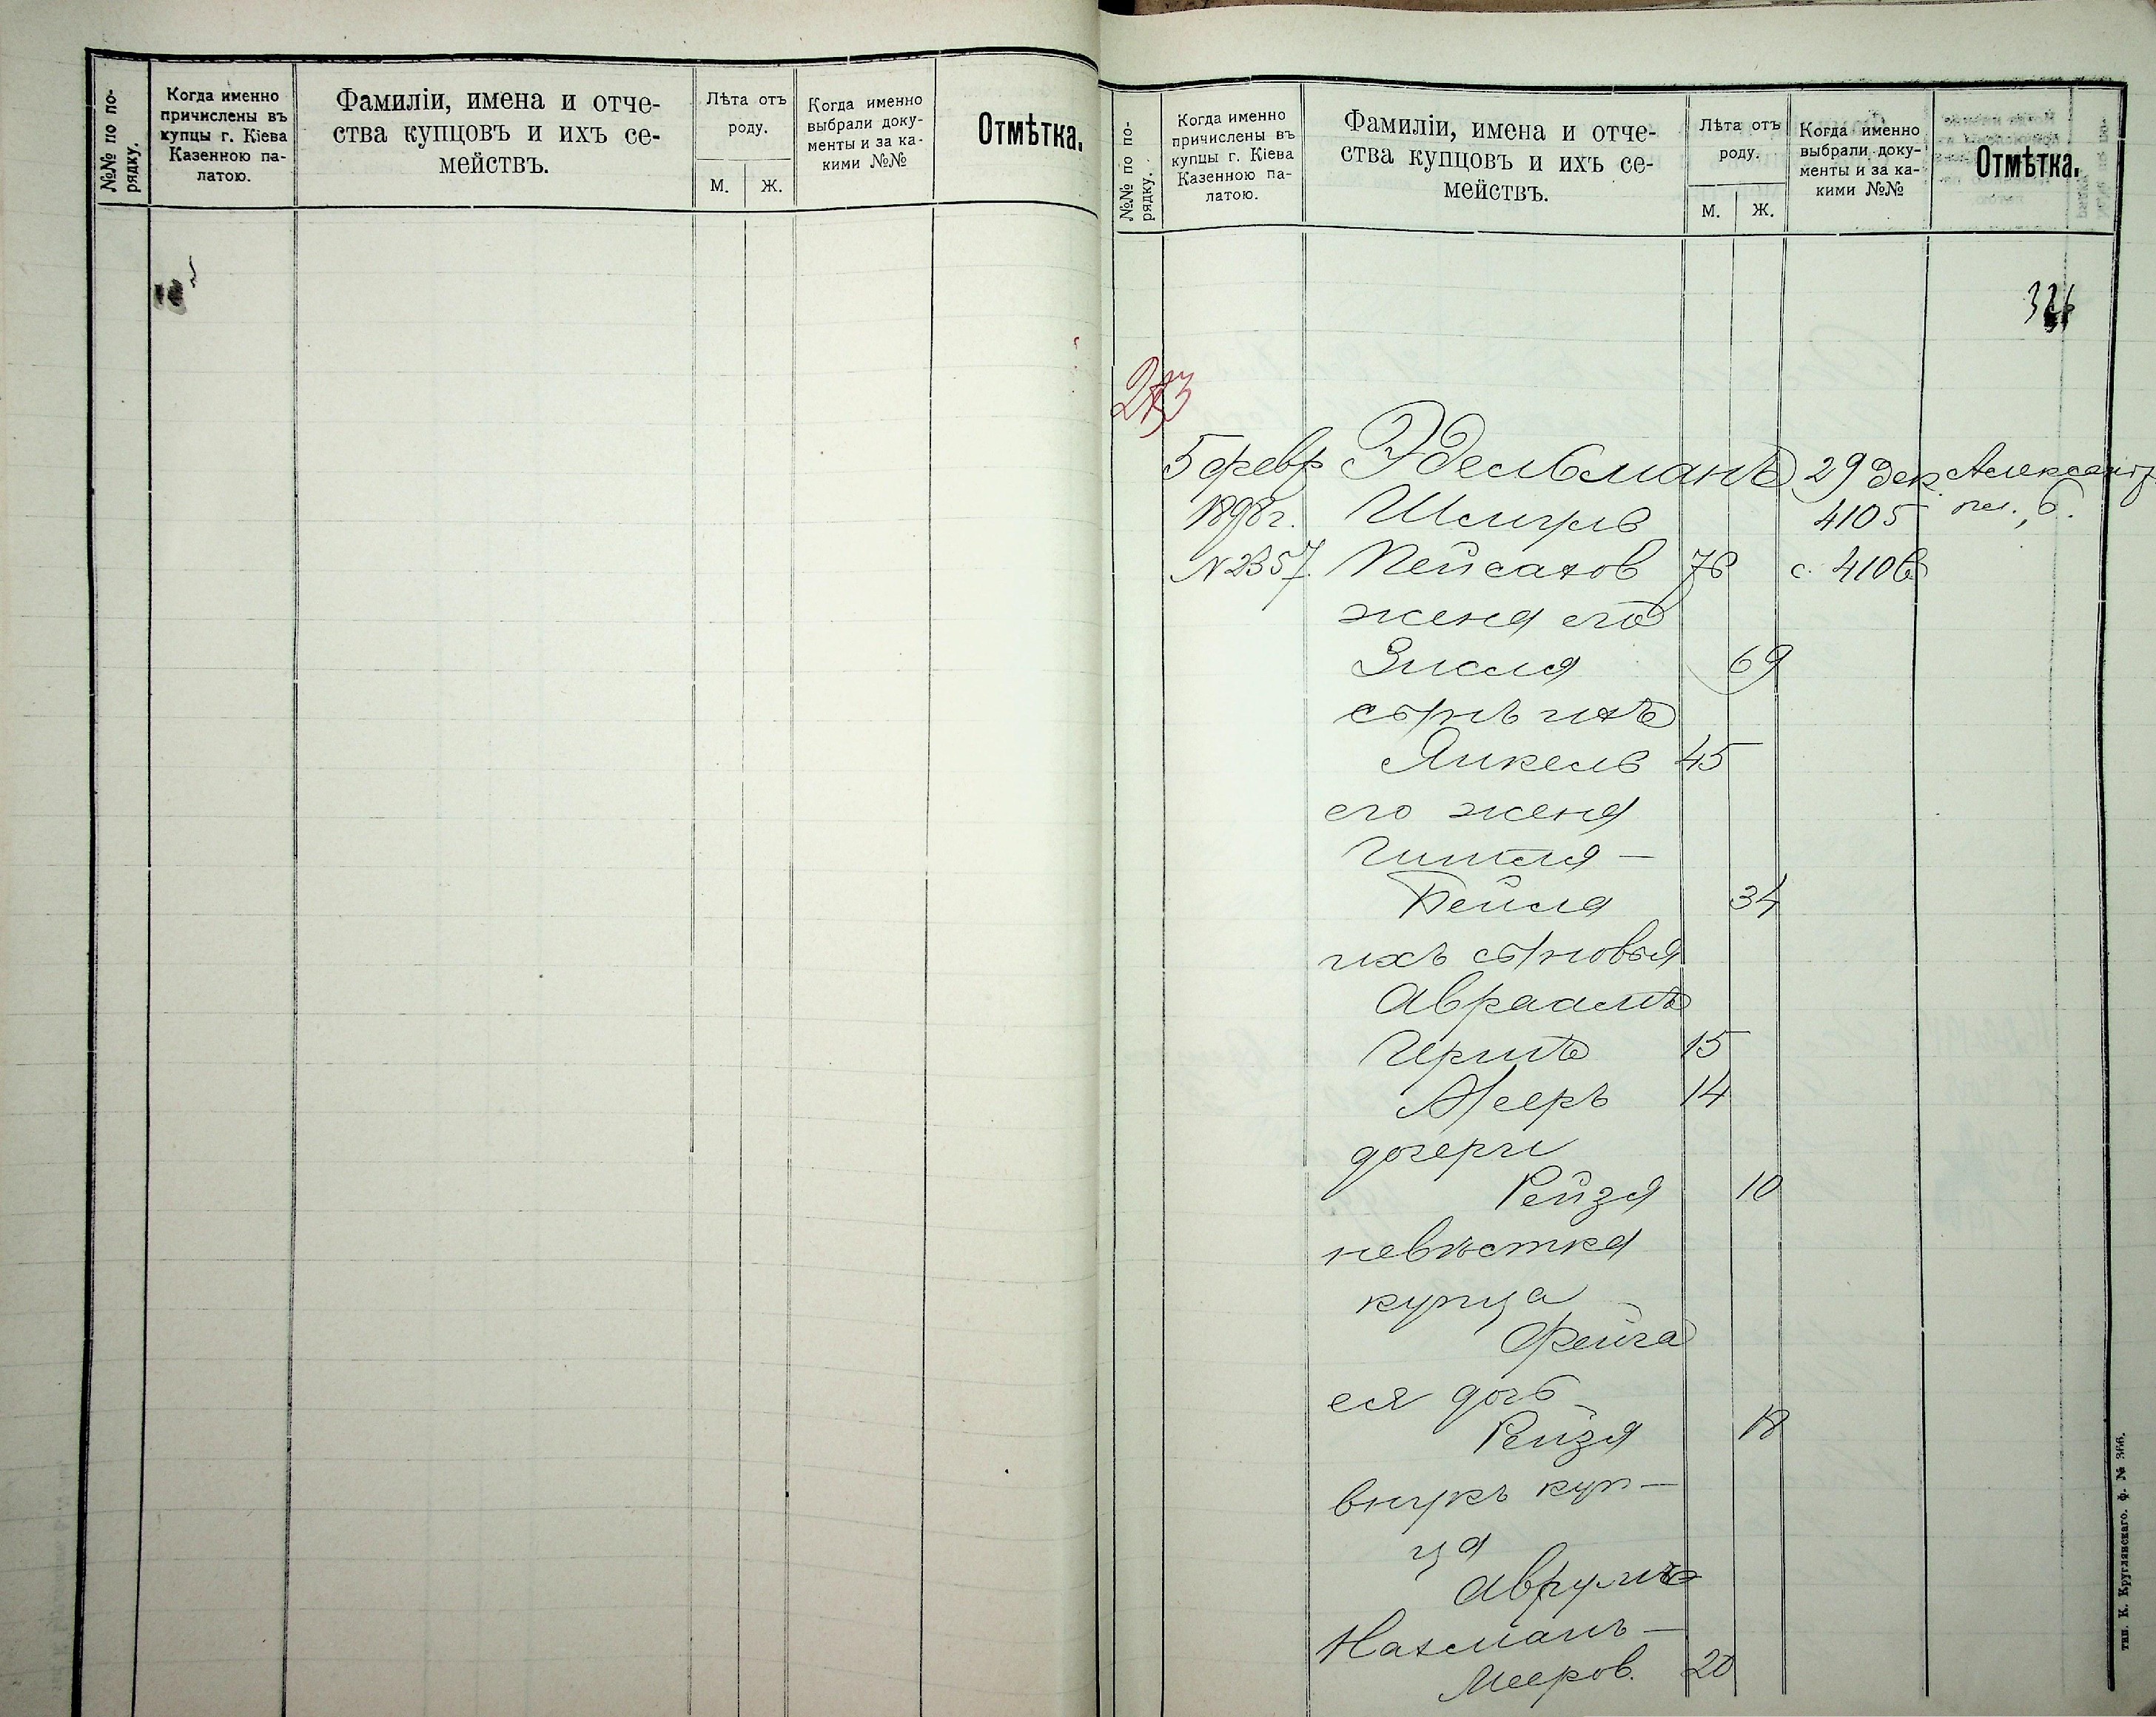 №№ по по-
рядку.
Когда именно
причислены въ
купцы г. Кіева
Казенною па-
латою.
Фамиліи, имена и отче-
ства купцовъ и ихъ се-
мействъ.
Лѣта отъ
роду.
М. Ж.
Когда именно
выбрали доку-
менты и за ка-
кими №№
Отмѣтка.
№№ по по-
рядку.
Когда именно
причислены въ
купцы г. Кіева
Казенною па-
латою.
Фамиліи, имена и отче-
ства купцовъ и ихъ се-
мействъ.
Лѣта отъ
роду.
М. Ж.
Когда именно
выбрали доку-
менты и за ка-
кими №№
Отмѣтка.
326
5 февр Эдельманъ 29 дек. Александр
1898 г. Шмуль 4105 пл., 6.
N 2357. Пейсахов 76 с. 4106
жена его
Зисля 69
сынъ ихъ
Янкель 45
его жена
Гитля —
Бейла 34
ихъ сыновья
Авраамъ
Иршъ 15
Мееръ 14
дочери
Рейзя 10
невѣстка
купца
Фейга
ея дочь
Рейзя 18
внукъ куп—
ца
Аврумъ
Нахманъ —
Мееров. 20
тип. К. Круглянскаго. ф. № 366.